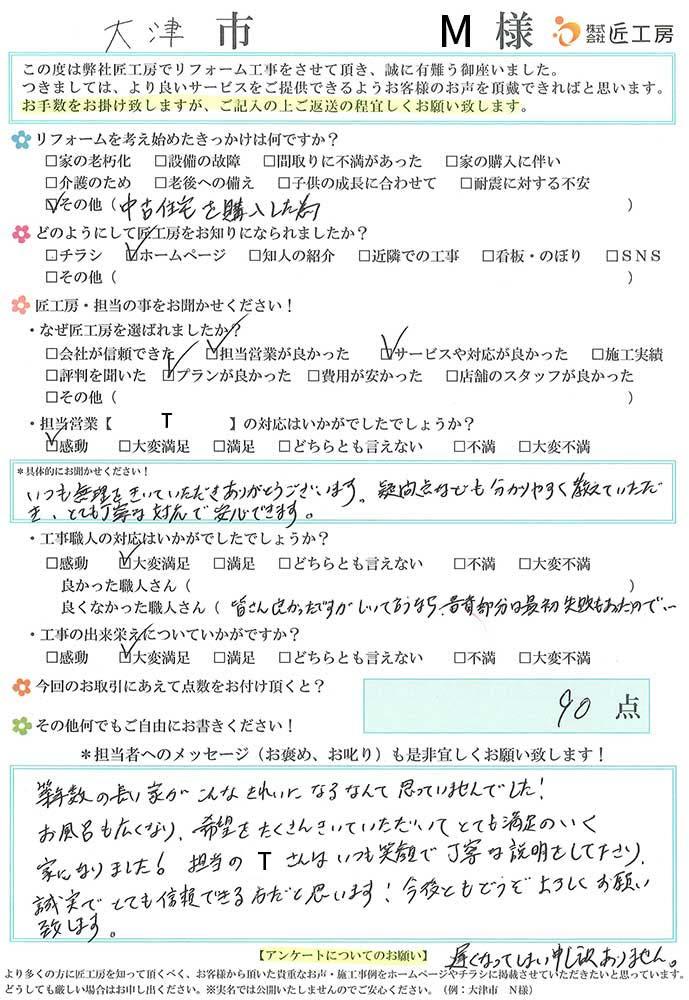 大津 市 M 様 株式会社 匠工房
この度は弊社匠工房でリフォーム工事をさせて頂き、誠に有難う御座いました。
つきましては、より良いサービスをご提供できるようお客様のお声を頂戴できればと思います。
お手数をお掛け致しますが、ご記入の上ご返送の程宜しくお願い致します。
リフォームを考え始めたきっかけは何ですか？
□家の老朽化 □設備の故障 □間取りに不満があった □家の購入に伴い
□介護のため □老後への備え □子供の成長に合わせて □耐震に対する不安
☑その他（中古住宅を購入した為 ）
どのようにして匠工房をお知りになられましたか？
□チラシ ☑ホームページ □知人の紹介 □近隣での工事 □看板・のぼり □ＳＮＳ
□その他（ ）
匠工房・担当の事をお聞かせください！
・なぜ匠工房を選ばれましたか？
□会社が信頼できた ☑担当営業が良かった ☑サービスや対応が良かった □施工実績
□評判を聞いた ☑プランが良かった □費用が安かった □店舗のスタッフが良かった
□その他（ ）
・担当営業【 T 】の対応はいかがでしたでしょうか？
☑感動 □大変満足 □満足 □どちらとも言えない □不満 □大変不満
＊具体的にお聞かせください！
いつも無理をきいていただきありがとうございます。疑問点なども分かりやすく教えていただ
き、とても丁寧な対応で安心できます。
・工事職人の対応はいかがでしたでしょうか？
□感動 ☑大変満足 □満足 □どちらとも言えない □不満 □大変不満
良かった職人さん（ ）
良くなかった職人さん（ 皆さん良かったですがしいて言うなら、 部分は最初失敗もあったので…
・工事の出来栄えについていかがですか？
□感動 ☑大変満足 □満足 □どちらとも言えない □不満 □大変不満
今回のお取引にあえて点数をお付け頂くと？ 90 点
その他何でもご自由にお書きください！
＊担当者へのメッセージ（お褒め、お叱り）も是非宜しくお願い致します！
築年数の長い家がこんなきれいになるなんて思っていませんでした！
お風呂も広くなり、希望をたくさんきいていただいてとても満足のいく
家になりました！担当のTさんはいつも笑顔で丁寧な説明をして下さり、
誠実でとても信頼できる方だと思います！今後ともどうぞよろしくお願い
致します。
【アンケートについてのお願い】 遅くなってしまい申し訳ありません。
より多くの方に匠工房を知って頂くべく、お客様から頂いた貴重なお声・施工事例をホームページやチラシに掲載させていただきたいと思っています。
どうしても厳しい場合はお申し出ください。※実名では公開いたしませんのでご安心ください。（例：大津市 N様）